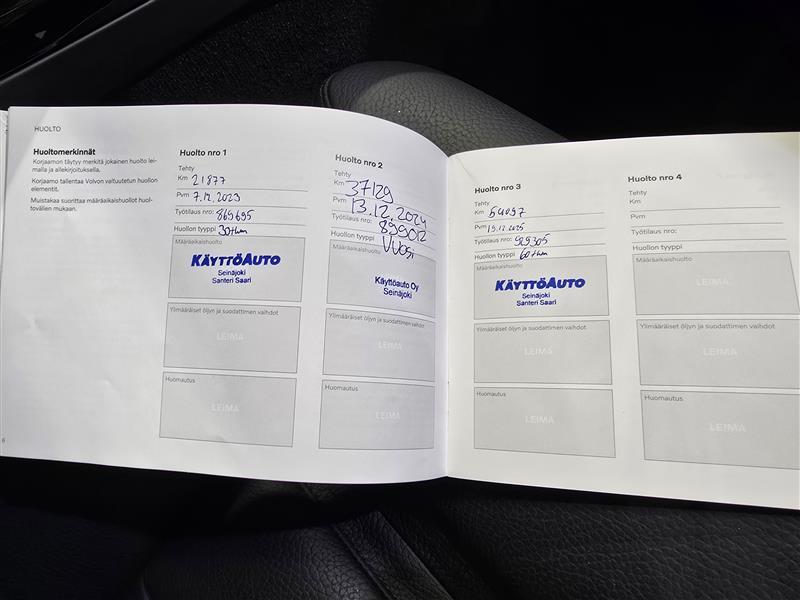 HUOLTO
Huoltomerkinnät
Korjaamon täytyy merkitä jokainen huolto lei-
malla ja allekirjoituksella.
Korjaamo tallentaa Volvon valtuutetun huollon
elementit.
Muistakaa suorittaa määräaikaishuollot huol-
tovälien mukaan.
6
Huolto nro 1
Tehty
Km 21877
Pvm 7.12.2023
Työtilaus nro: 869695
Huollon tyyppi 30tkm
Määräaikaishuolto
KÄYTTÖAUTO
Seinäjoki
Santeri Saari
Ylimääräiset öljyn ja suodattimen vaihdot
LEIMA
Huomautus
LEIMA
Huolto nro 2
Tehty
Km 37129
Pvm 13.12.2024
Työtilaus nro: 899012
Huollon tyyppi Vuosi
Määräaikaishuolto
Käyttöauto Oy
Seinäjoki
Ylimääräiset öljyn ja suodattimen vaihdot
LEIMA
Huomautus
LEIMA
Huolto nro 3
Tehty
Km 54097
Pvm 19.12.2025
Työtilaus nro: 929305
Huollon tyyppi 60tkm
Määräaikaishuolto
KÄYTTÖAUTO
Seinäjoki
Santeri Saari
Ylimääräiset öljyn ja suodattimen vaihdot
LEIMA
Huomautus
LEIMA
Huolto nro 4
Tehty
Km
Pvm
Työtilaus nro:
Huollon tyyppi
Määräaikaishuolto
LEIMA
Ylimääräiset öljyn ja suodattimen vaihdot
LEIMA
Huomautus
LEIMA